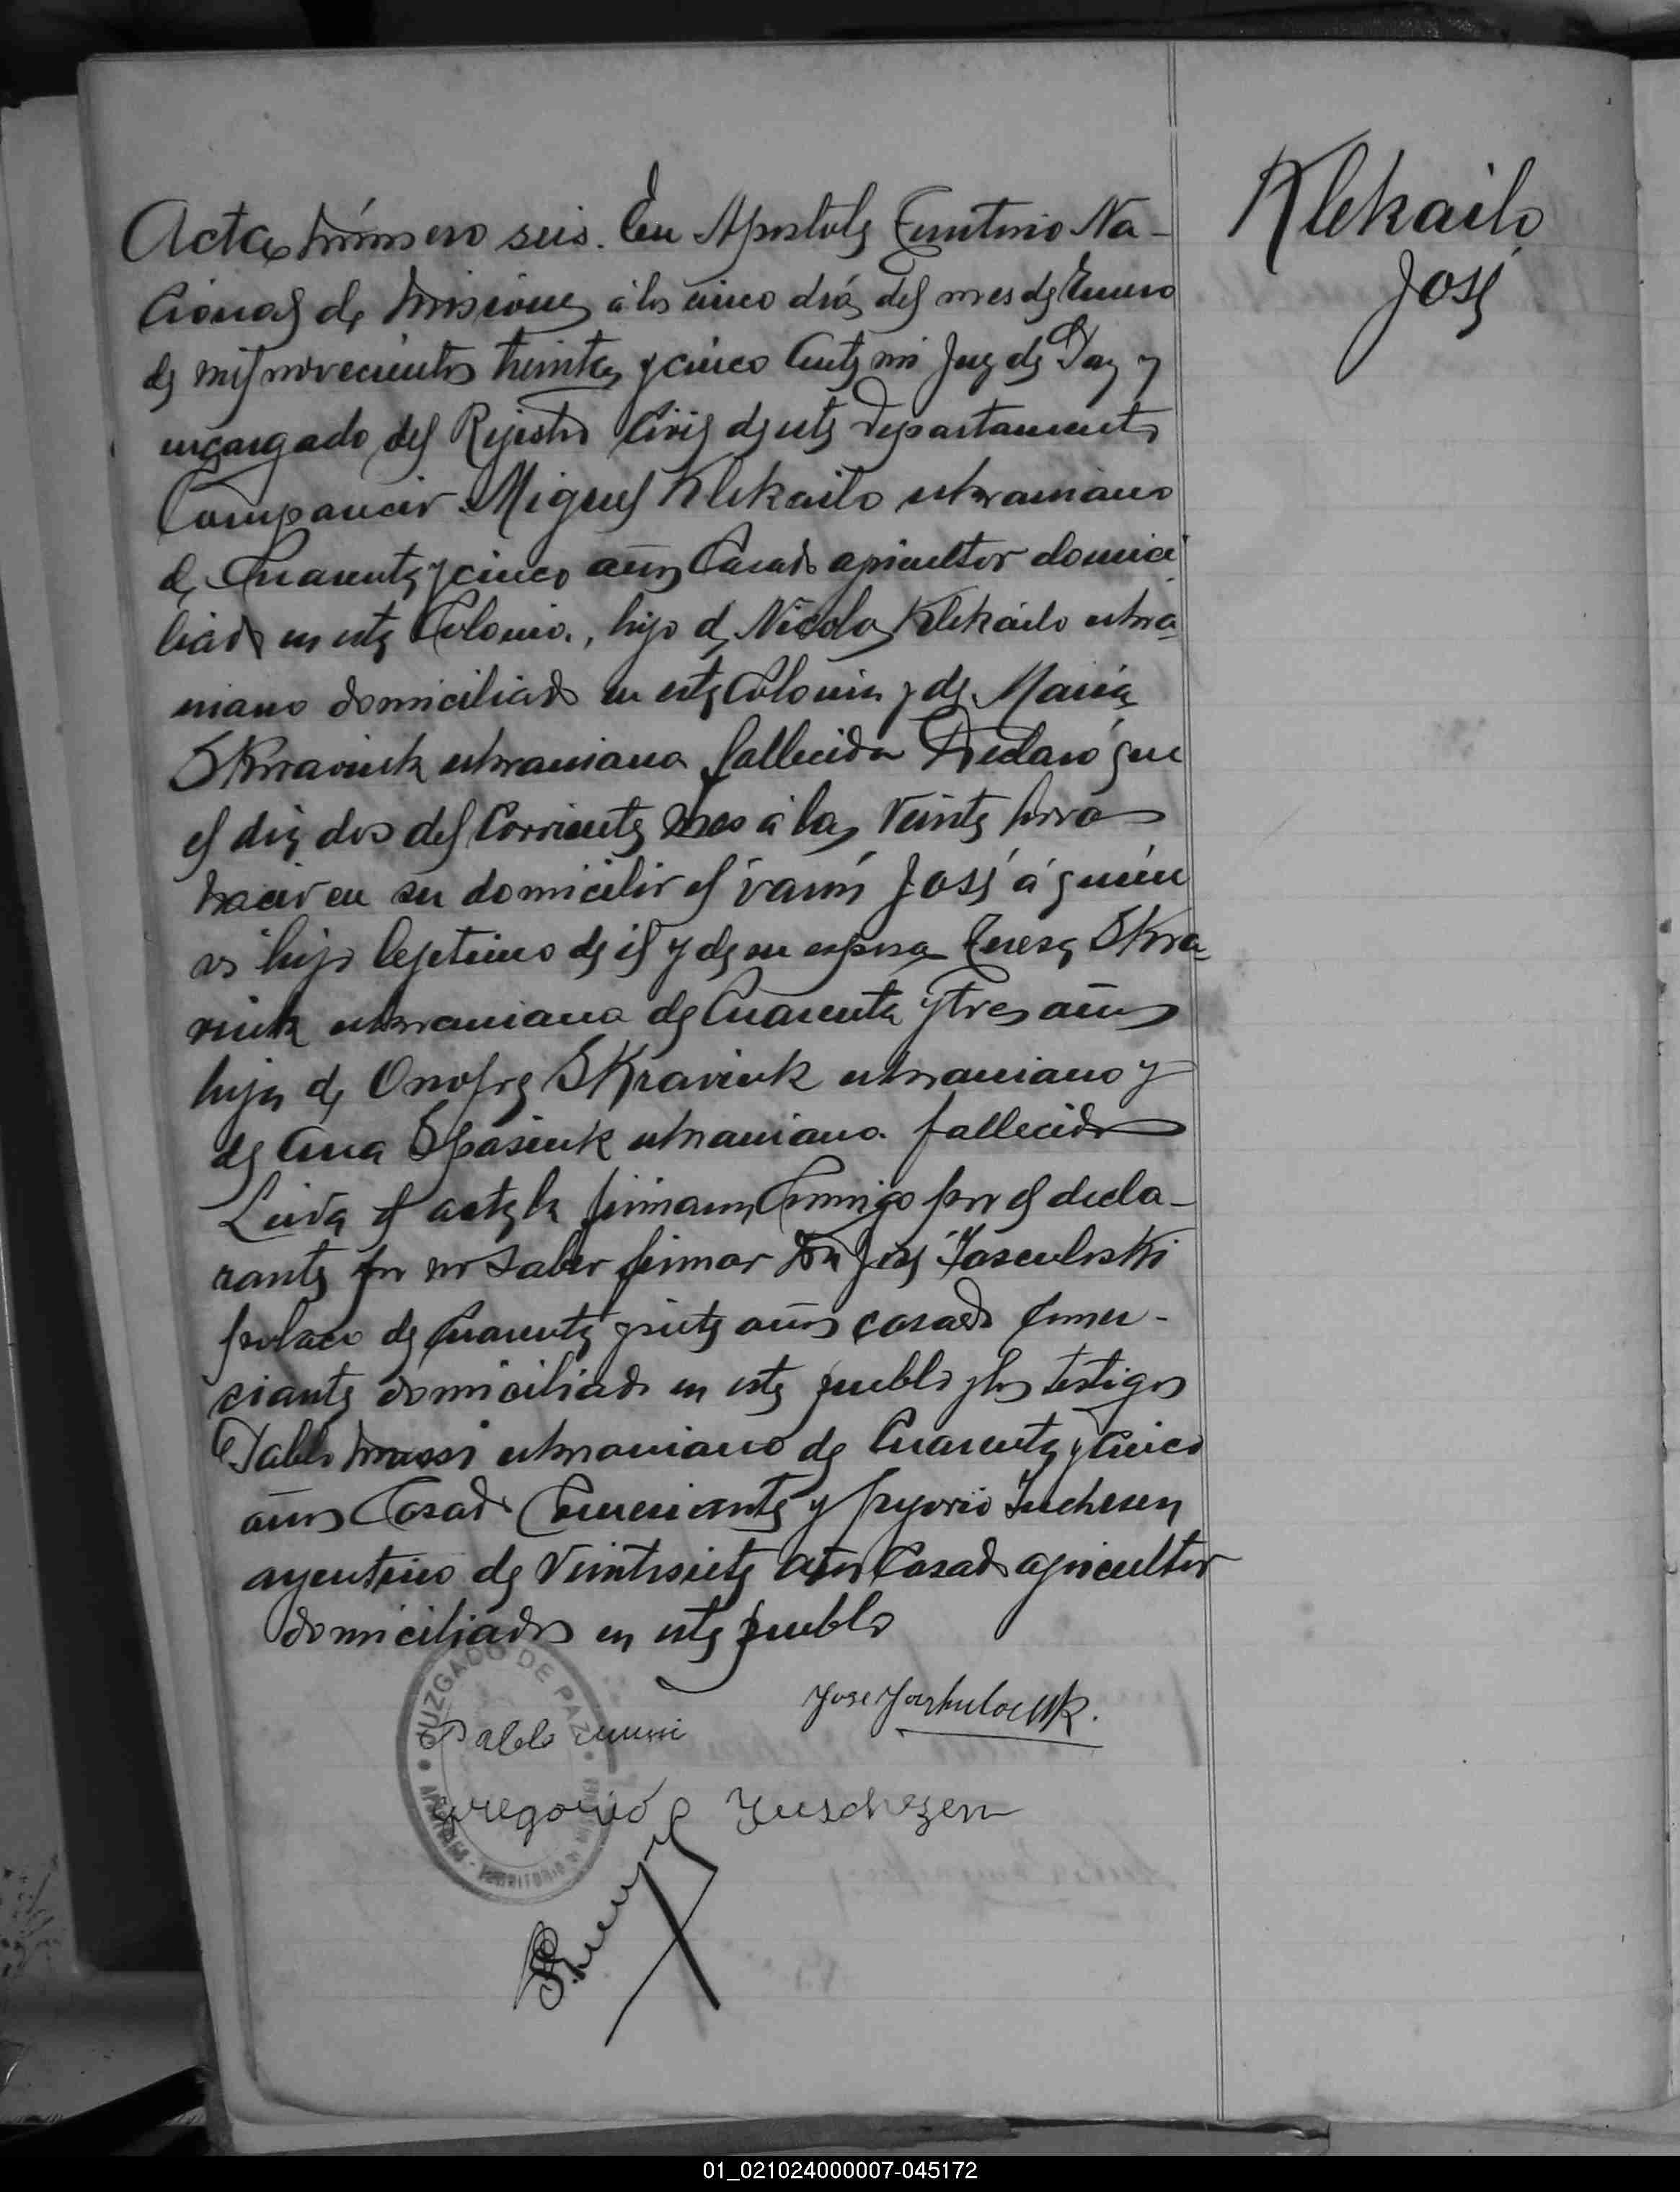 Klekailo
José
Acta Número seis. En Apostoles Territorio Na-
cional de Misiones á los cinco días del mes de Enero
de mil novecientos treinta y cinco Ante mi Juez de Paz y
encargado del Rejistro Civil de este Departamento
Compareció Miguel Klekailo ukraniano
de Cuarenta y cinco años Casado agricultor domici
liado en esta Colonia, hijo de Nicolas Klekailo ukra-
niano domiciliado en esta Colonia y de María
Skraviuk ukraniana fallecida Declaró que
el día dos del Corriente mes á las Veinte horas
nació en su domicilio el varón José á quién
es hijo lejetimo de él y de su esposa Teresa Skra-
viuk ukraniana de Cuarenta y tres años
hija de Onofre Skraviuk ukraniano y
de Ana Spasiuk ukraniana fallecidos
Leida el acta la firmaron Conmigo por el decla-
rante por no saber firmar Don José Jasculoski
polaco de Cuarenta y siete años casado Comer-
ciante domiciliado en este pueblo y los testigos
Pablo ukraniano de Cuarenta y Cinco
años Casado Comerciante y Gregorio Juchesen
argentino de Veintisiete años Casado agricultor
domiciliados en este pueblo
Jose
Pablo
Gregorio Juschezen
JUZGADO DE PAZ
APOSTOLES - TERRITORIO DE
01_021024000007-045172